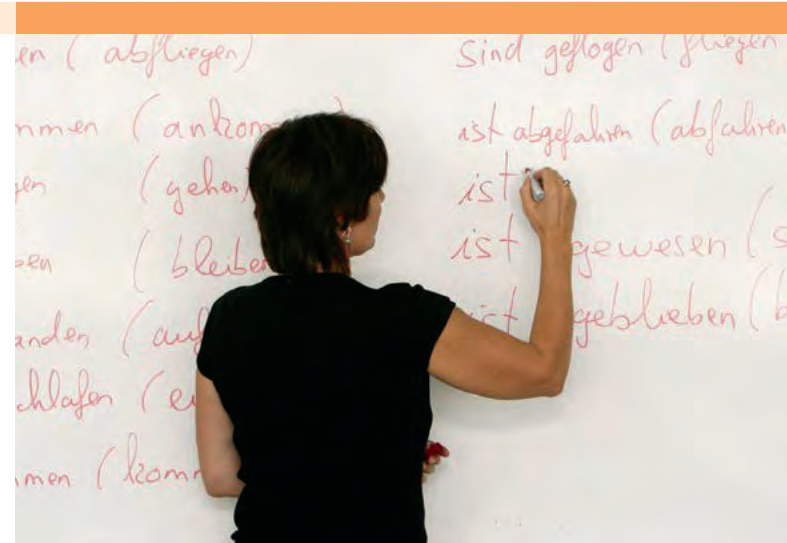 en (abfliegen)
mmen (ankom )
gen (gehen)
ben (bleiben
anden (auf
chlafen (e
mmen (komm
Sind geflogen (fliegen
ist abgefahren (abfahren
ist
ist gewesen (s
ist geblieben (b